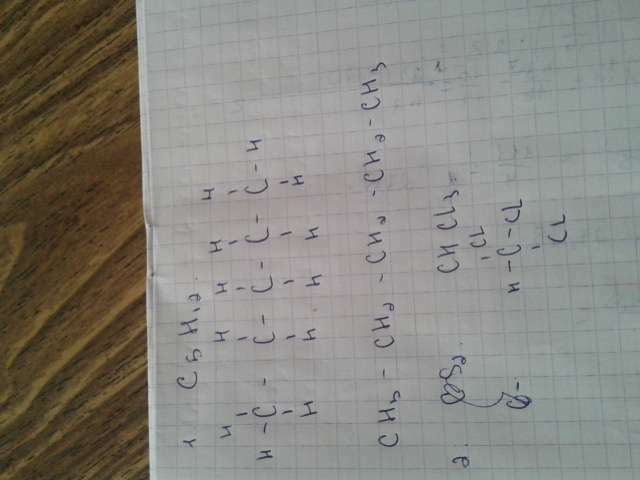 1. C5H12.
H H H H H
H - C - C - C - C - C - H
H H H H H
CH3 - CH2 - CH2 - CH2 - CH3
2. CS2. CHCl3
Cl
C- H - C - Cl
Cl